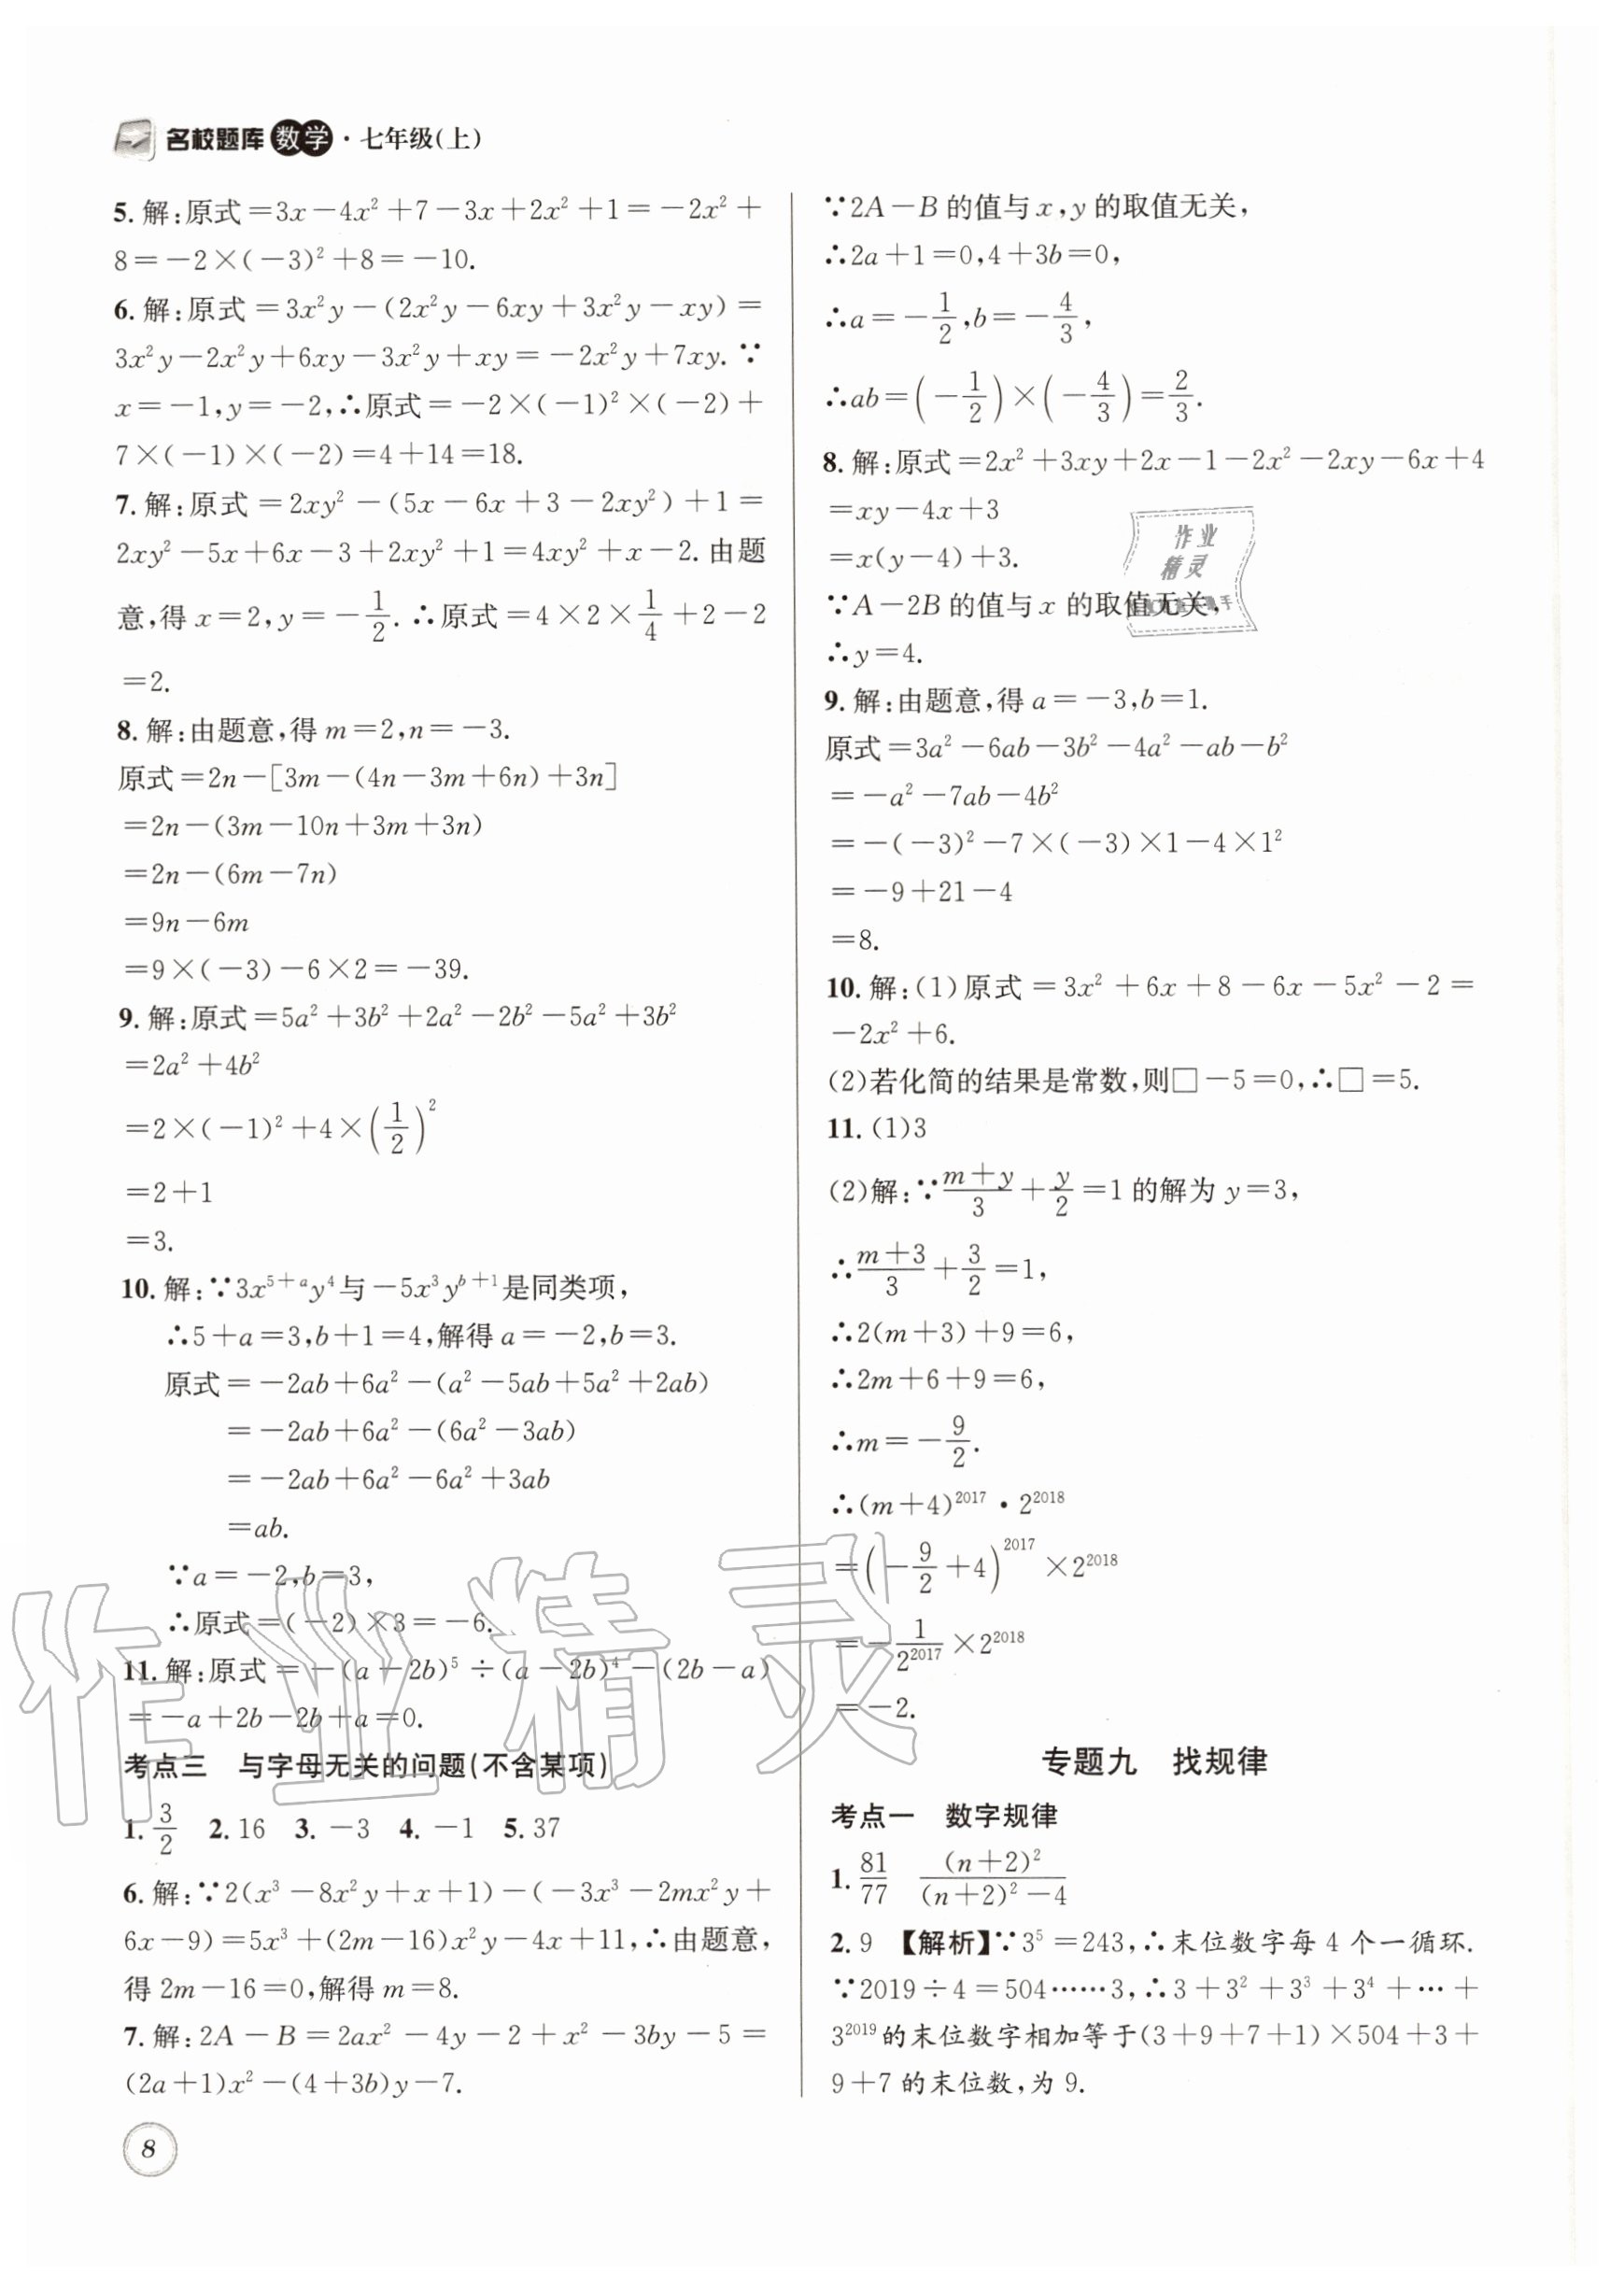 名校题库数学·七年级(上)
5.解:原式=3x-4x²+7-3x+2x²+1=-2x²+
8=-2×(-3)²+8=-10.
6.解:原式=3x²y-(2x²y-6xy+3x²y-xy)=
3x²y-2x²y+6xy-3x²y+xy=-2x²y+7xy.∵
x=-1,y=-2,∴原式=-2×(-1)²×(-2)+
7×(-1)×(-2)=4+14=18.
7.解:原式=2xy²-(5x-6x+3-2xy²)+1=
2xy²-5x+6x-3+2xy²+1=4xy²+x-2.由题
意,得x=2,y=-1/2.∴原式=4×2×1/4+2-2
=2.
8.解:由题意,得m=2,n=-3.
原式=2n-[3m-(4n-3m+6n)+3n]
=2n-(3m-10n+3m+3n)
=2n-(6m-7n)
=9n-6m
=9×(-3)-6×2=-39.
9.解:原式=5a²+3b²+2a²-2b²-5a²+3b²
=2a²+4b²
=2×(-1)²+4×(1/2)²
=2+1
=3.
10.解:∵3x⁵⁺ᵃy⁴与-5x³yᵇ⁺¹是同类项,
∴5+a=3,b+1=4,解得a=-2,b=3.
原式=-2ab+6a²-(a²-5ab+5a²+2ab)
=-2ab+6a²-(6a²-3ab)
=-2ab+6a²-6a²+3ab
=ab.
∵a=-2,b=3,
∴原式=(-2)×3=-6.
11.解:原式=-(a-2b)⁵÷(a-2b)⁴-(2b-a)
=-a+2b-2b+a=0.
考点三 与字母无关的问题(不含某项)
1.3/2 2.16 3.-3 4.-1 5.37
6.解:∵2(x³-8x²y+x+1)-(-3x³-2mx²y+
6x-9)=5x³+(2m-16)x²y-4x+11,∴由题意,
得2m-16=0,解得m=8.
7.解:2A-B=2ax²-4y-2+x²-3by-5=
(2a+1)x²-(4+3b)y-7.
∵2A-B的值与x,y的取值无关,
∴2a+1=0,4+3b=0,
∴a=-1/2,b=-4/3,
∴ab=(-1/2)×(-4/3)=2/3.
8.解:原式=2x²+3xy+2x-1-2x²-2xy-6x+4
=xy-4x+3
=x(y-4)+3.
∵A-2B的值与x的取值无关,
∴y=4.
9.解:由题意,得a=-3,b=1.
原式=3a²-6ab-3b²-4a²-ab-b²
=-a²-7ab-4b²
=-(-3)²-7×(-3)×1-4×1²
=-9+21-4
=8.
10.解:(1)原式=3x²+6x+8-6x-5x²-2=
-2x²+6.
(2)若化简的结果是常数,则□-5=0,∴□=5.
11.(1)3
(2)解:∵(m+y)/3+y/2=1的解为y=3,
∴(m+3)/3+3/2=1,
∴2(m+3)+9=6,
∴2m+6+9=6,
∴m=-9/2.
∴(m+4)²⁰¹⁷·2²⁰¹⁸
=(-9/2+4)²⁰¹⁷×2²⁰¹⁸
=-1/2²⁰¹⁷×2²⁰¹⁸
=-2.
专题九 找规律
考点一 数字规律
1.81/77 (n+2)²/((n+2)²-4)
2.9 【解析】∵3⁵=243,∴末位数字每4个一循环.
∵2019÷4=504……3,∴3+3²+3³+3⁴+…+
3²⁰¹⁹的末位数字相加等于(3+9+7+1)×504+3+
9+7的末位数,为9.
8
作业
精灵
作业精灵